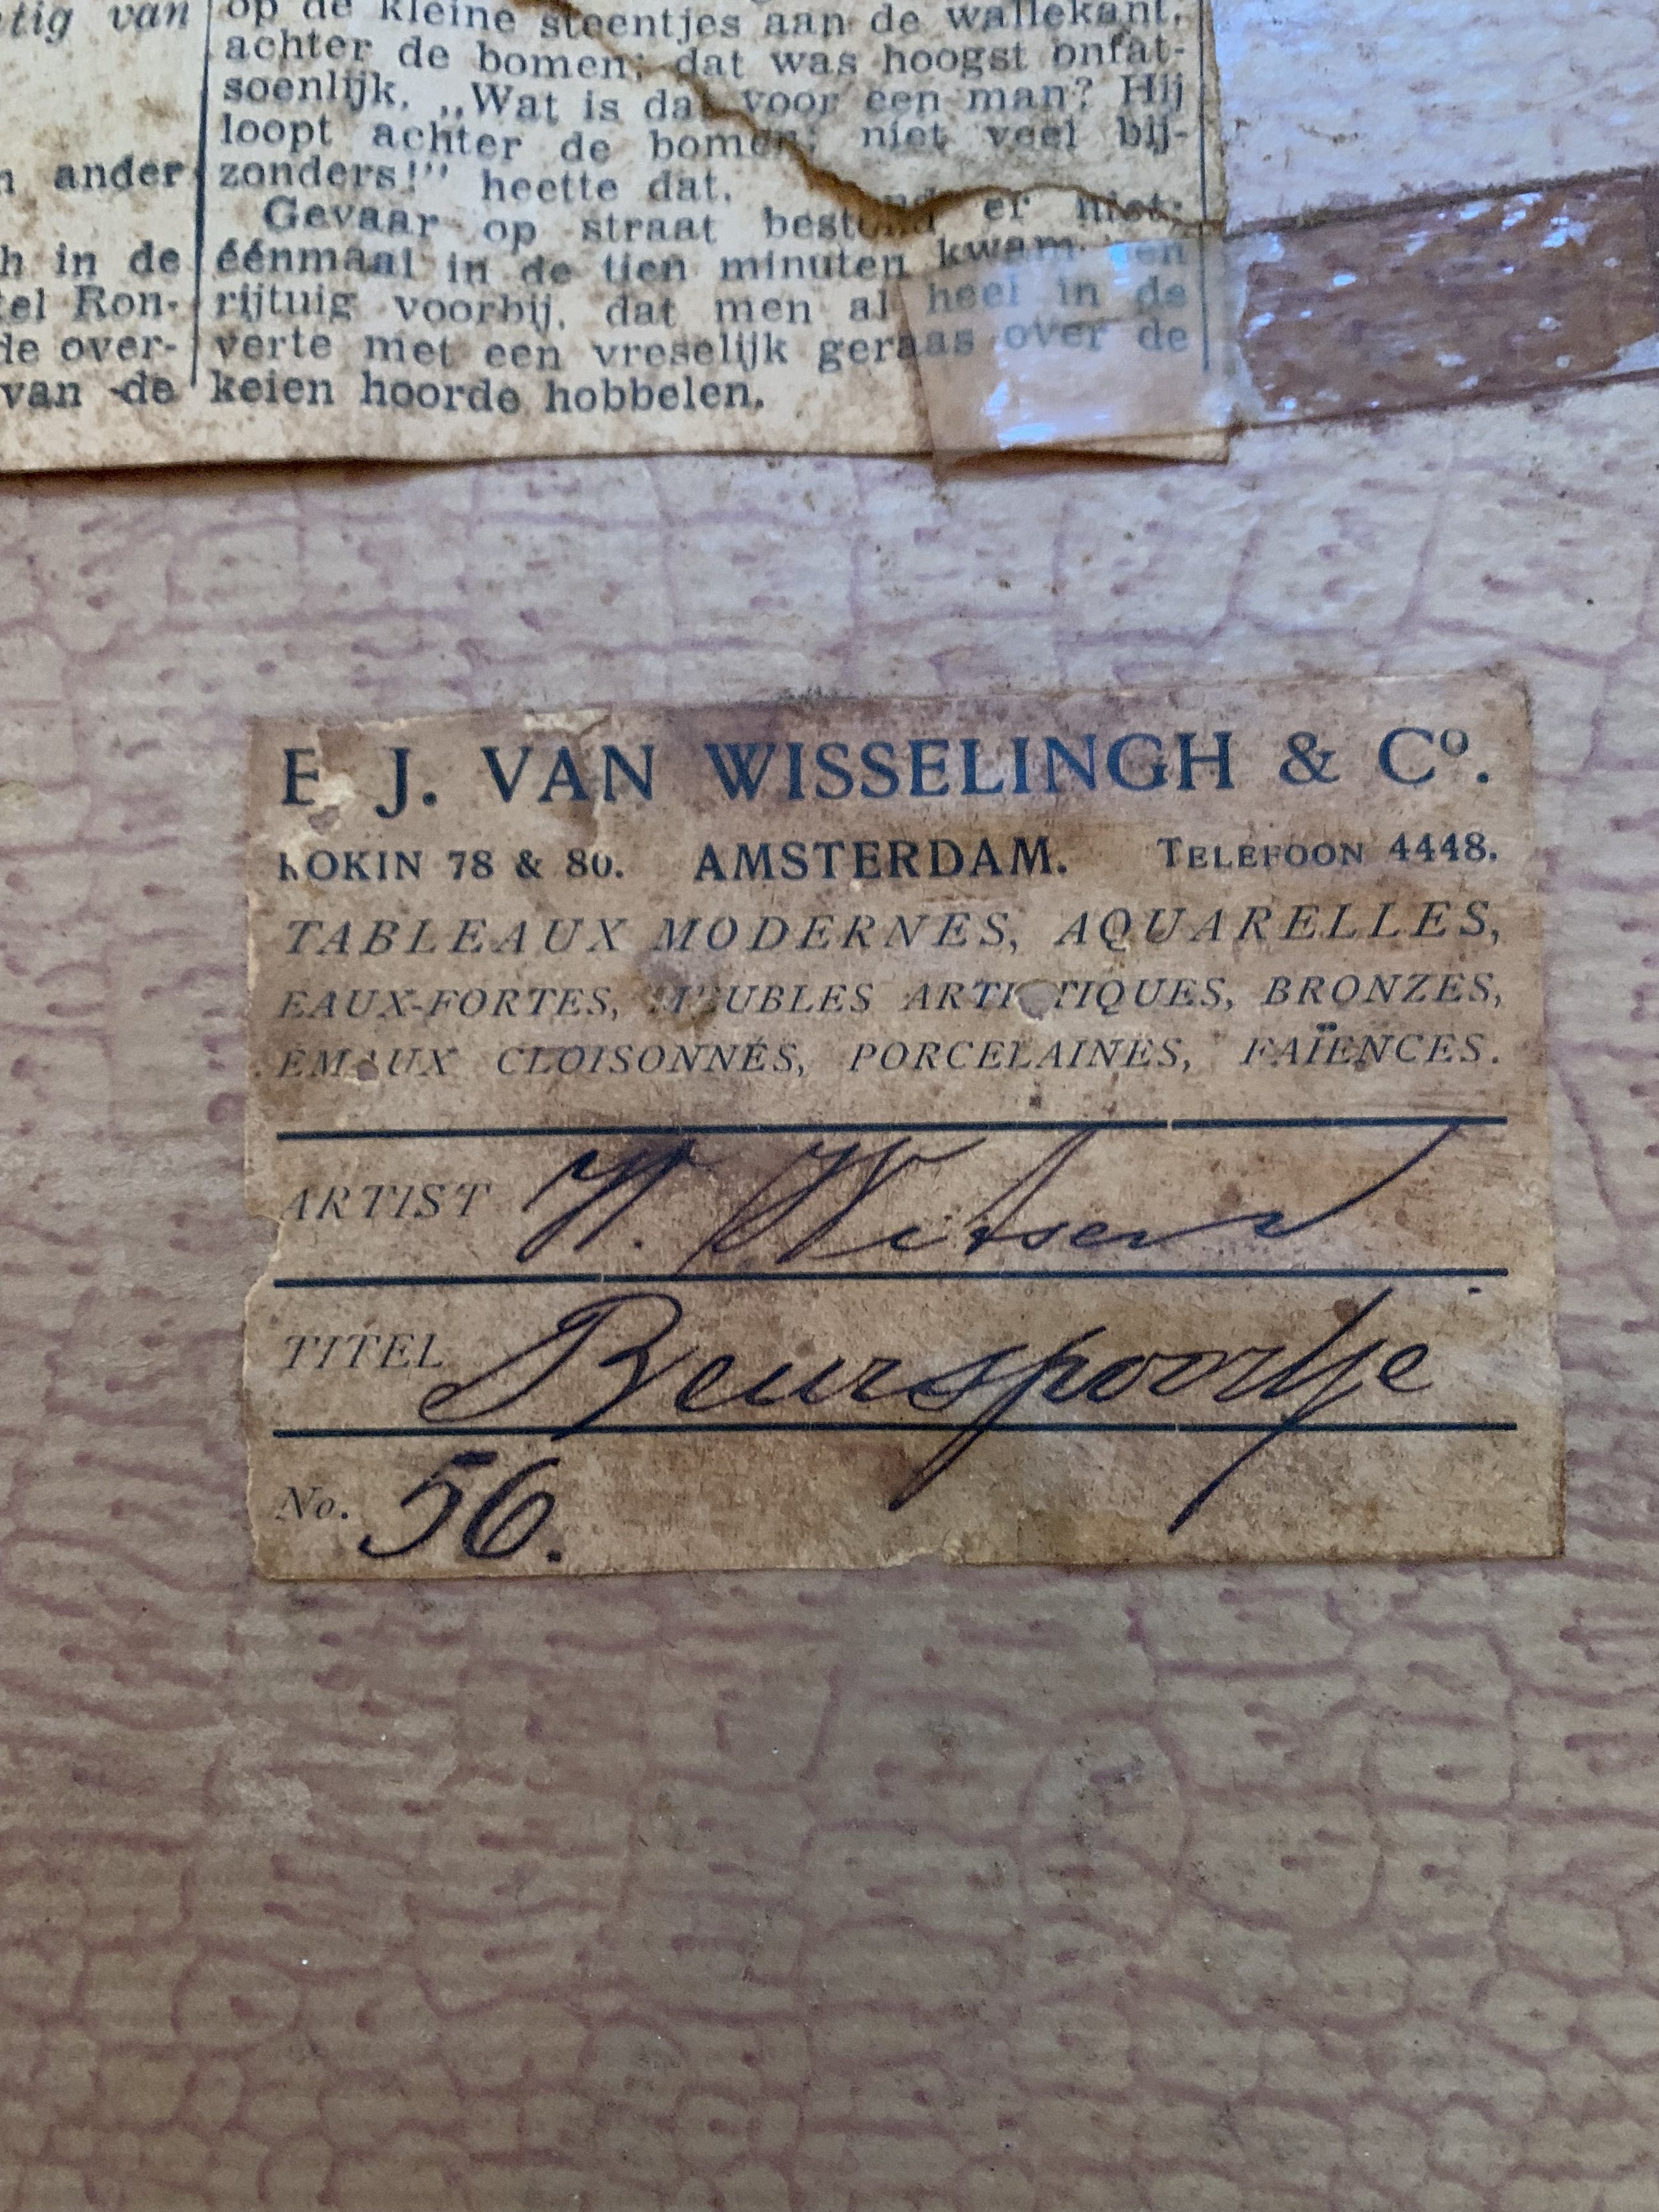 tig van
ander
h in de
tel Ron-
de over-
van de
op de kleine steentjes aan de wallekant,
achter de bomen; dat was hoogst onfat-
soenlijk. „Wat is dat voor een man? Hij
loopt achter de bomen; niet veel bij-
zonders!" heette dat.
Gevaar op straat bestond er niet;
éénmaal in de tien minuten kwam een
rijtuig voorbij, dat men al heel in de
verte met een vreselijk geraas over de
keien hoorde hobbelen.
E J. VAN WISSELINGH & Cº.
ROKIN 78 & 80. AMSTERDAM. TELEFOON 4448.
TABLEAUX MODERNES, AQUARELLES,
EAUX-FORTES, MEUBLES ARTISTIQUES, BRONZES,
EMAUX CLOISONNÉS, PORCELAINES, FAÏENCES.
ARTIST W. Witsen
TITEL Beurspoortje
No. 56.